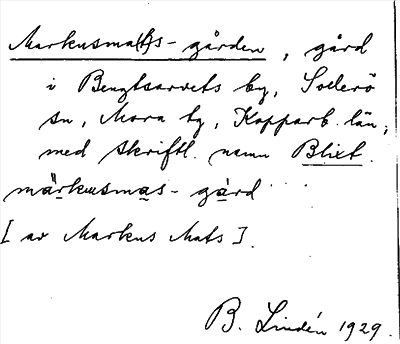 Markusma(t)s-gården, gård
i Bengtsarvets by, Sollerö
sn, Mora tg, Kopparb. län,
med skriftl. namn Blixt.
märkusmas-gård
[av Markus Mats].
B. Lindén 1929.